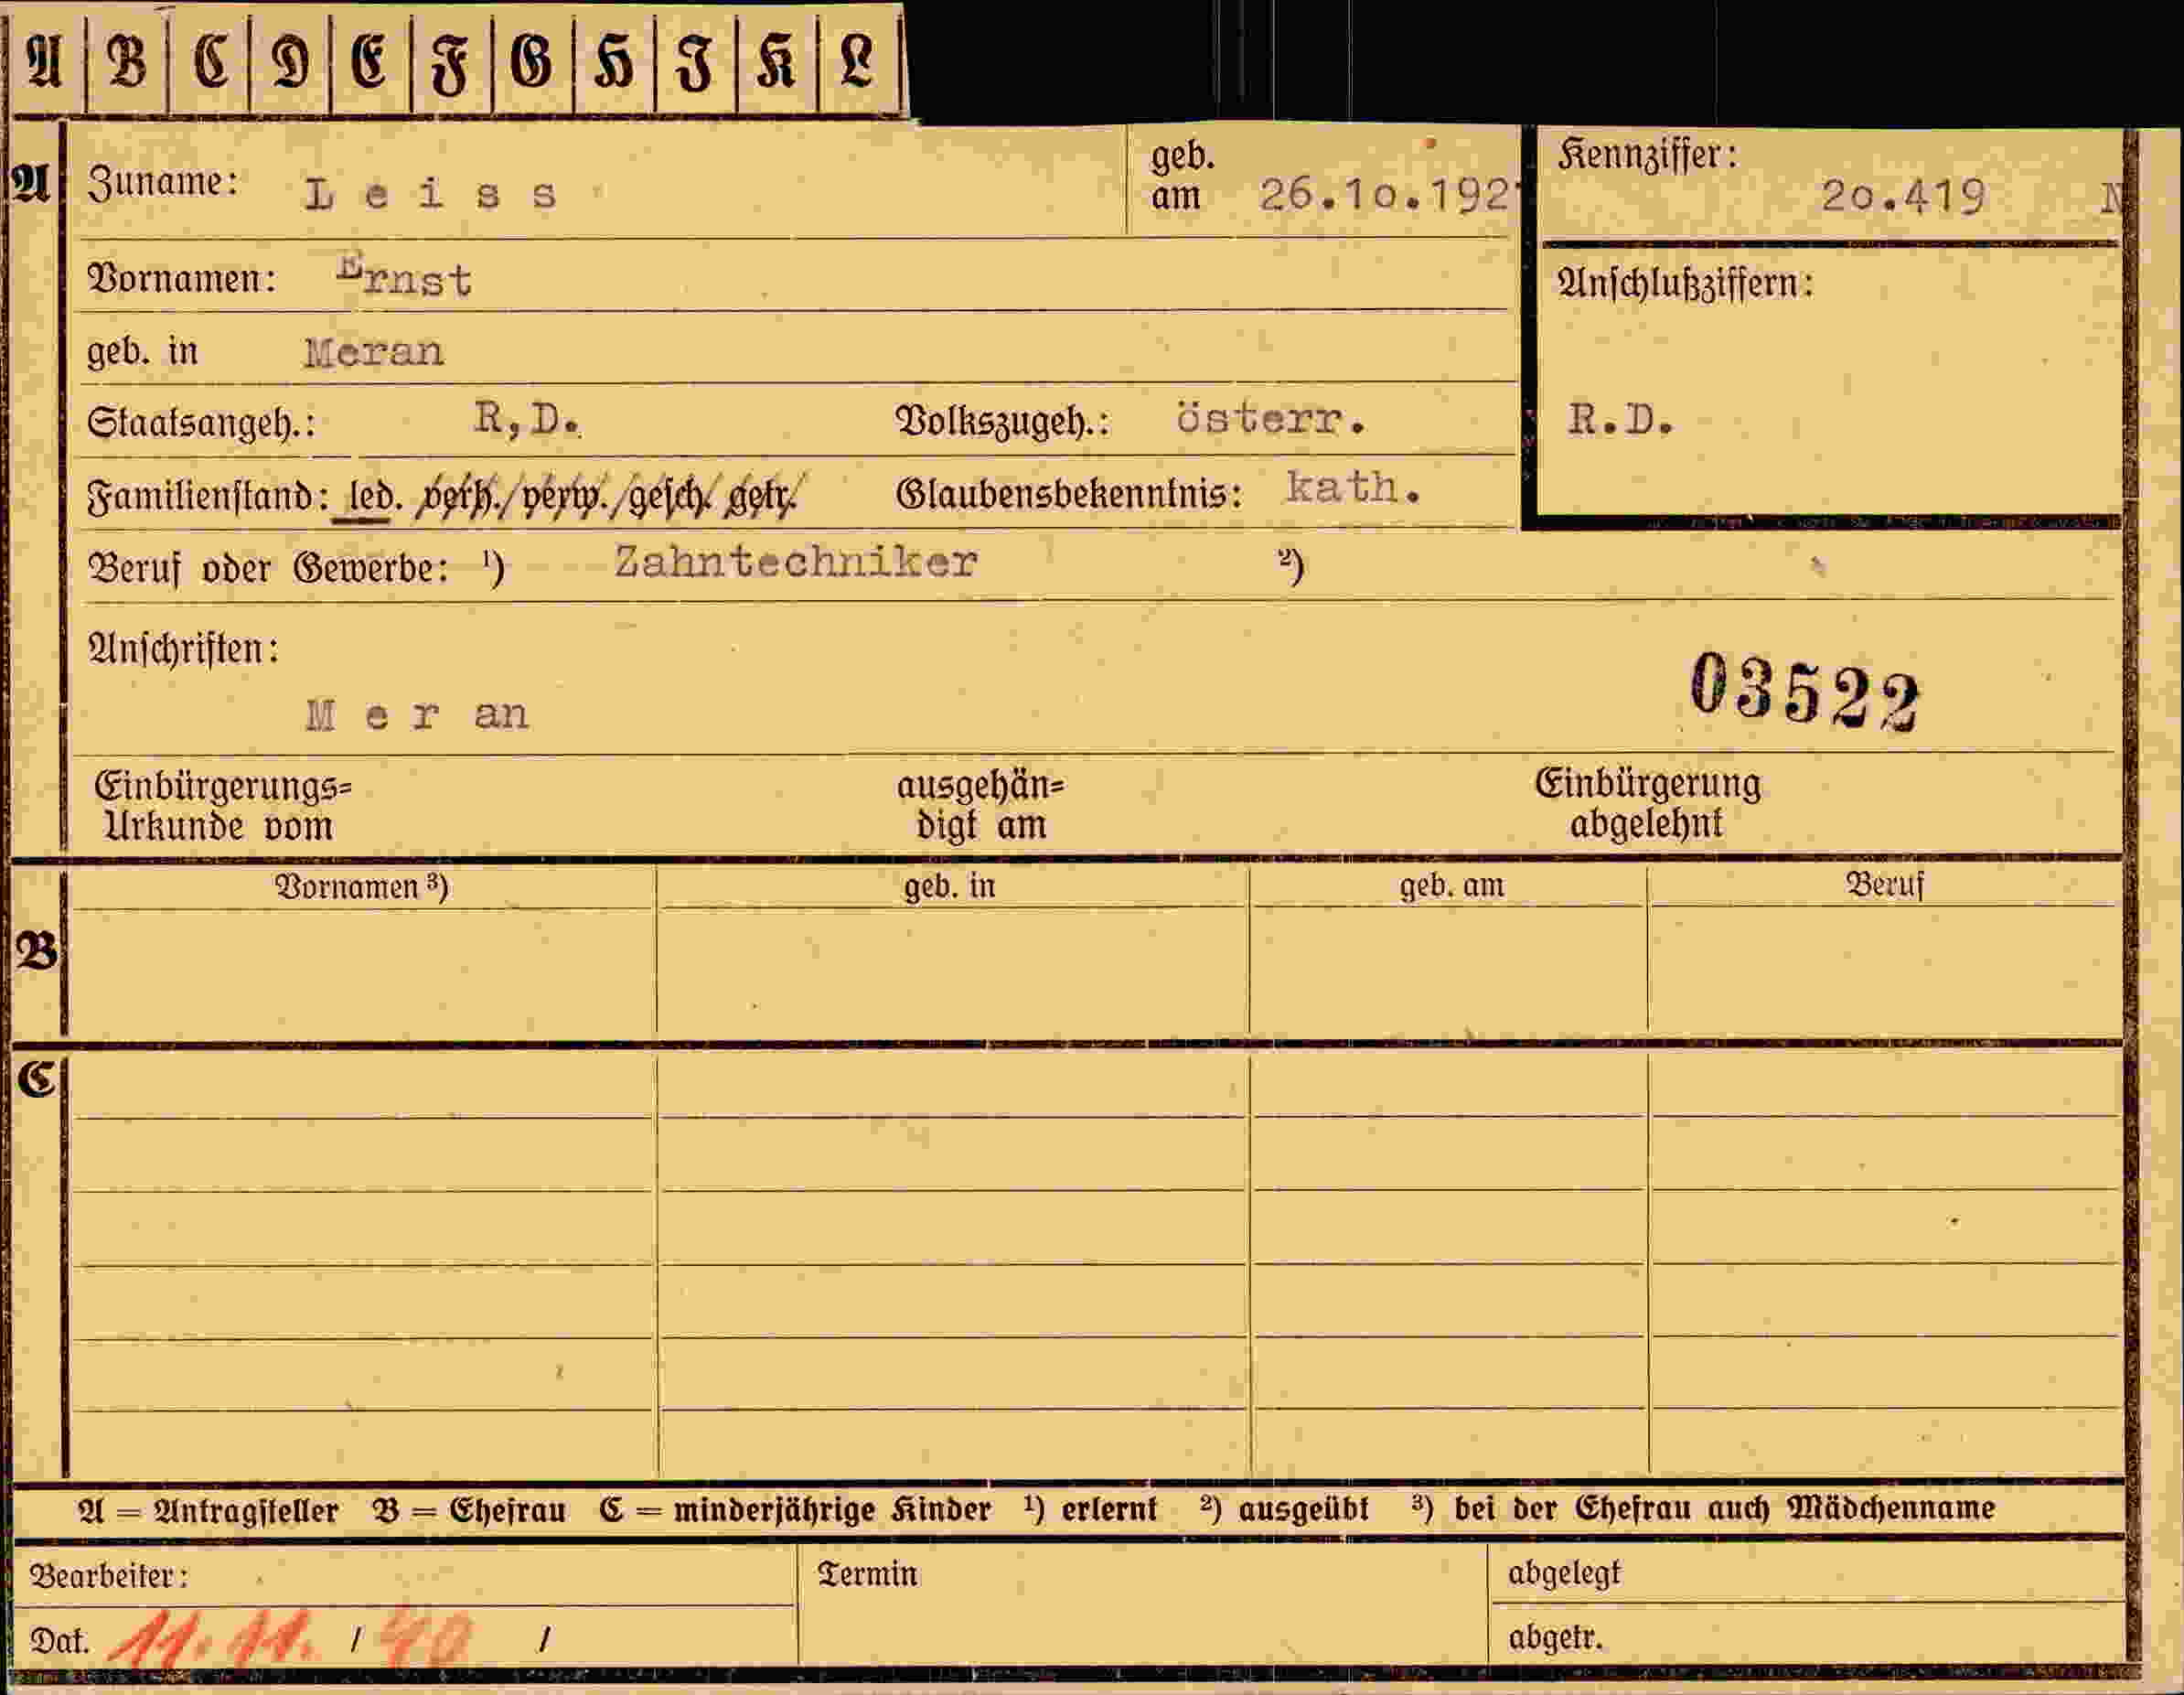 A B C D E F G H I K L
A
Zuname: Leiss
geb. am 26.10.192
Kennziffer: 20.419 N
Vornamen: Ernst
Anschlußziffern:
geb. in Meran
Staatsangeh.: R,D. Volkszugeh.: österr.
R.D.
Familienstand: led. verh./verw./gesch. getr. Glaubensbekenntnis: kath.
Beruf oder Gewerbe: ¹) Zahntechniker ²)
Anschriften:
Meran
03522
Einbürgerungs= ausgehän= Einbürgerung
Urkunde vom digt am abgelehnt
Vornamen ³) geb. in geb. am Beruf
B
C
A = Antragsteller B = Ehefrau C = minderjährige Kinder ¹) erlernt ²) ausgeübt ³) bei der Ehefrau auch Mädchenname
Bearbeiter: Termin abgelegt
Dat. 11. 11. / 40 / abgetr.